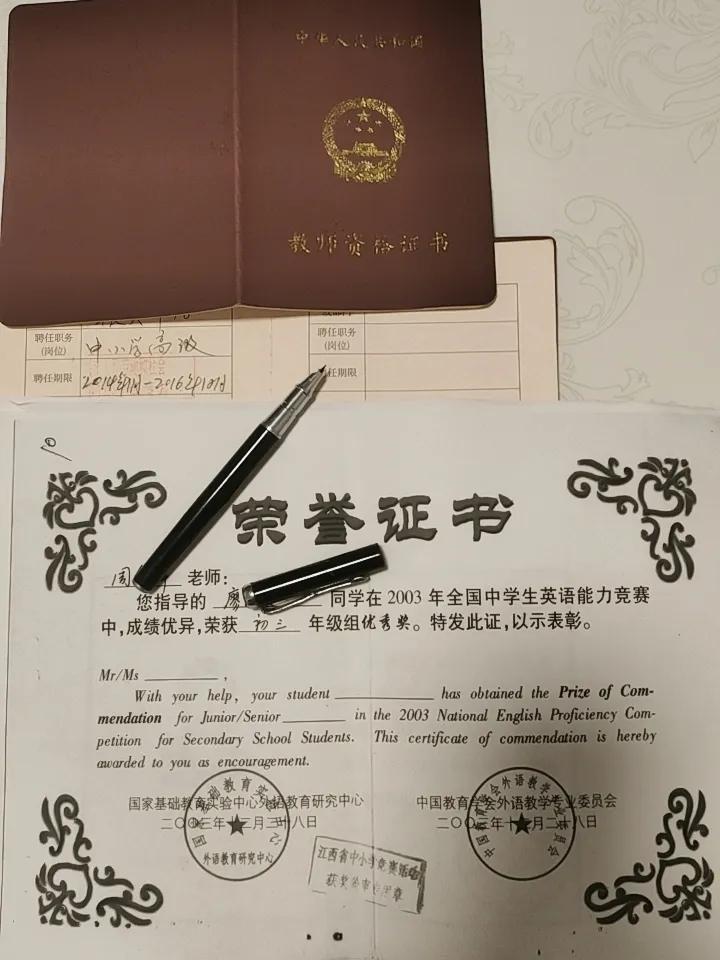 中华人民共和国
教师资格证书
聘任职务
(岗位)
中小学高级
聘任期限
2014年9月-2016年10月
聘任职务
(岗位)
任期限
荣誉证书
周 老师:
您指导的 廖 同学在 2003 年全国中学生英语能力竞赛
中,成绩优异,荣获 初三 年级组优秀奖。特发此证,以示表彰。
Mr/Ms ,
With your help, your student has obtained the Prize of Com-
mendation for Junior/Senior in the 2003 National English Proficiency Com-
petition for Secondary School Students. This certificate of commendation is hereby
awarded to you as encouragement.
国家基础教育实验中心外语教育研究中心
二〇〇三年十二月二十八日
外语教育研究中心
中国教育学会外语教学专业委员会
二〇〇三年十二月二十八日
江西省中小学竞赛活动
获奖 审 章